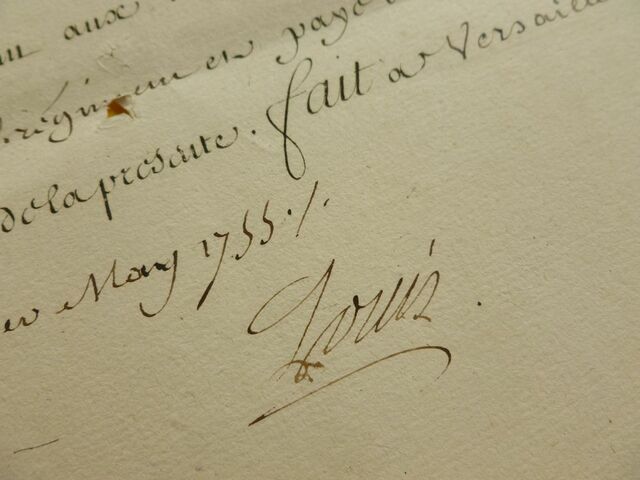 aux
régiment payé
de la presente. fait a Versaille
er May 1755./.
Louis.